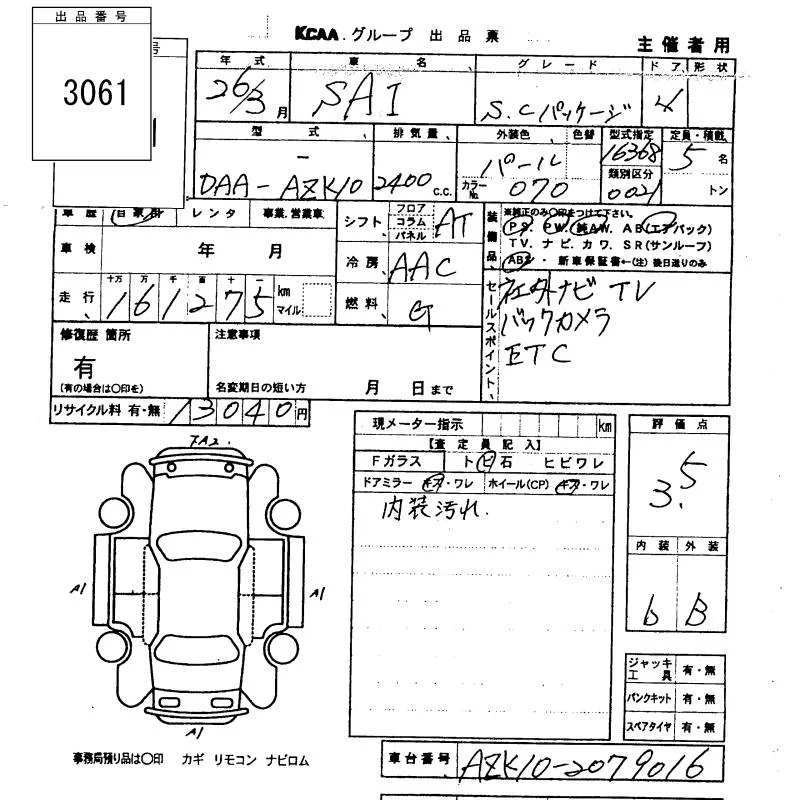 出品番号
3061
号
KCAA グループ 出品票
主催者用
年式 車名 グレード ドア 形状
26/3月 SAI S.Cパッケージ 4
型式 排気量 外装色 色替 型式指定 定員・積載
DAA-AZK10 2400 C.C. パール 16368 5名
カラーNo. 070 類別区分 0021 トン
車歴 自家用 レンタ 事業.営業車
シフト フロア コラム パネル AT
装備品
※純正のみ○印をつけて下さい。
P.S. P.W. 純AW. AB(エアバック)
TV. ナビ. カワ. SR(サンルーフ)
ABS・新車保証書←(注) 後日送りのみ
車検 年 月
冷房 AAC
走行 十万 万 千 百 十 一
161275 km マイル
燃料 G
セールスポイント
社外ナビ TV
バックカメラ
ETC
修復歴 箇所
有
(有の場合は○印を)
注意事項
名変期日の短い方 月 日まで
リサイクル料 有・無 13040円
現メーター指示 km
【査定員記入】
Fガラス トビ石 ヒビワレ
ドアミラー キズ・ワレ ホイール(CP) キズ・ワレ
内装汚れ.
評価点
3.5
内装 外装
b B
A1 A1
A1
ジャッキ工具 有・無
パンクキット 有・無
スペアタイヤ 有・無
事務局預り品は○印 カギ リモコン ナビロム
車台番号 AZK10-2079016